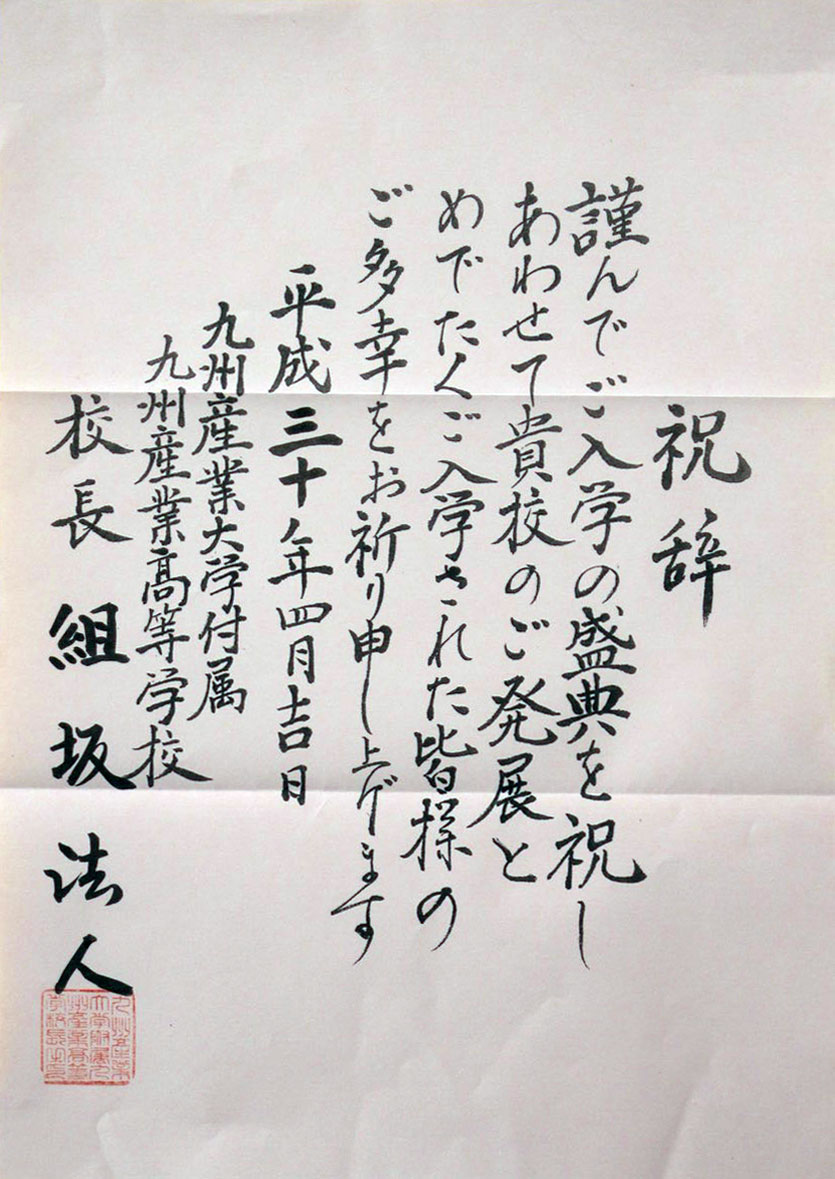 祝辞
謹んでご入学の盛典を祝し
あわせて貴校のご発展と
めでたくご入学された皆様の
ご多幸をお祈り申し上げます
平成三十年四月吉日
九州産業大学付属
九州産業高等学校
校長 組坂法人